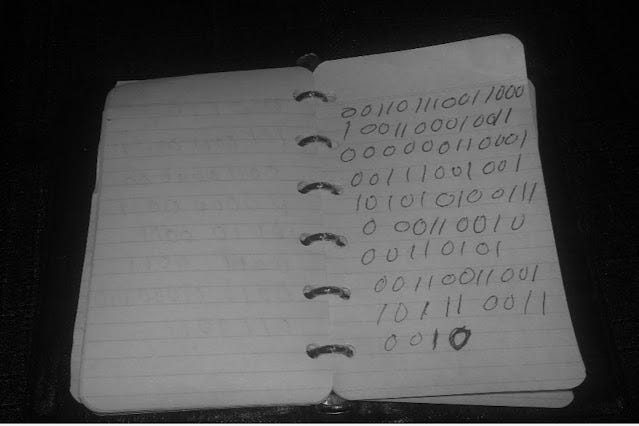 001101110011000
1001100010011
000000110001
00111001001
101010100111
0 00110010
00110101
00110011001
10111 0011
0010